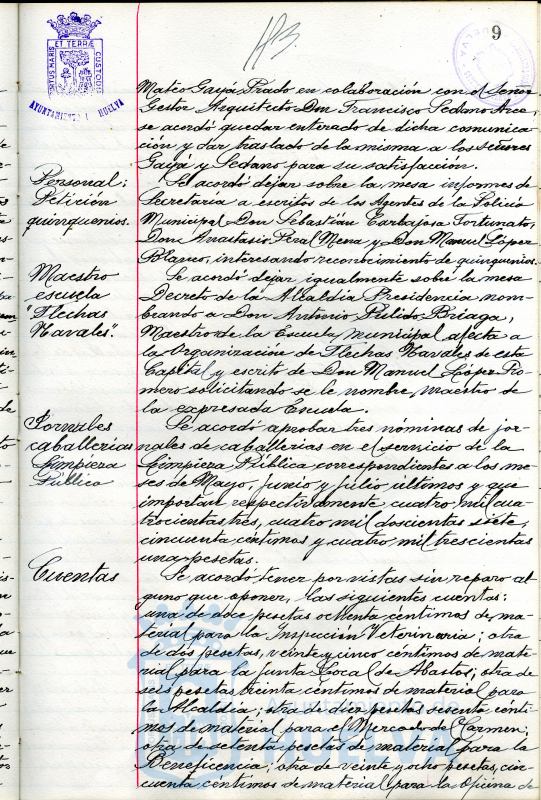 113
9
PORTUS MARIS ET TERRÆ CUSTODIA
AYUNTAMIENTO HUELVA
Mateo Gayá Prado en colaboración con el Señor
Gestor Arquitecto Don Francisco Sedano Arce,
se acordó quedar enterado de dicha comunica-
ción y dar traslado de la misma a los señores
Gayá y Sedano para su satisfacción.
Personal:
Petición
quinquenios.
Se acordó dejar sobre la mesa informes de
Secretaria a escritos de los Agentes de la Policía
Municipal Don Sebastián Carbajosa Fortunato,
Don Anastasio Pera Mena y Don Manuel López
Blanco, interesando reconocimiento de quinquenios.
Maestro
escuela
"Flechas
Navales".
Se acordó dejar igualmente sobre la mesa
Decreto de la Alcaldía Presidencia nom-
brando a Don Antonio Pulido Briaga,
Maestro de la Escuela municipal afecta a
la Organización de Flechas Navales de esta
Capital y escrito de Don Manuel López Ro-
mero solicitando se le nombre maestro de
la expresada Escuela.
Jornales
caballerias
Limpieza
Público
Se acordó aprobar tres nóminas de jor-
nales de caballerias en el servicio de la
Limpieza Pública correspondientes a los me-
ses de Mayo, Junio y Julio últimos y que
importan respectivamente cuatro mil cua-
trocientas tres, cuatro mil doscientas siete,
cincuenta céntimos y cuatro mil trescientas
una pesetas.
Cuentas
Se acordó tener por vistas sin reparo al-
guno que oponer, las siguientes cuentas:
una de doce pesetas ochenta céntimos de ma-
terial para la Inspección Veterinaria; otra
de dos pesetas, veinte y cinco céntimos de mate-
rial para la Junta Local de Abastos; otra de
seis pesetas treinta céntimos de material para
la Alcaldia; otra de diez pesetas sesenta cénti-
mos de material para el Mercado del Carmen;
otra de setenta pesetas de material para la
Beneficencia; otra de veinte y ocho pesetas, cin-
cuenta céntimos de material para la Oficina de